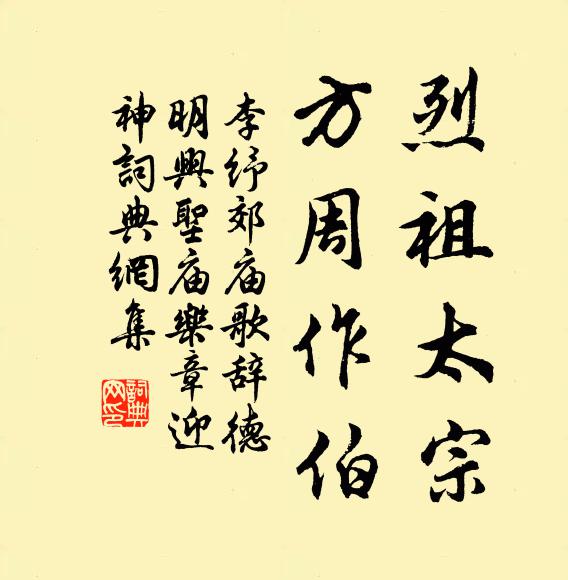 烈祖太宗
方周作伯
李纾郊庙歌辞德
明興聖庙樂章迎
神詞典網集
詞典网印